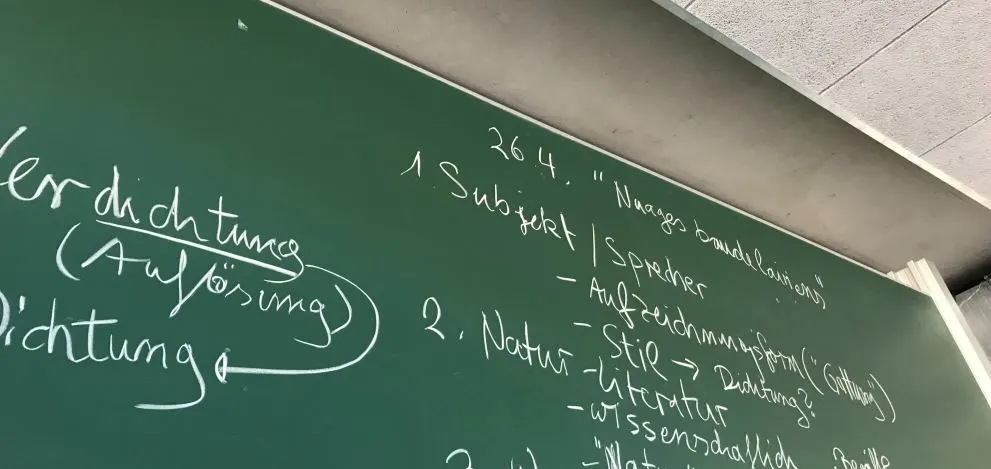 Verdichtung
(Auflösung)
Dichtung
26.4. "Nuages baudelairiens"
1. Subjekt / Sprecher
- Aufzeichnungsform ("Gattung")
- Stil → Dichtung?
2. Natur - Literatur
- wissenschaftlich
- "Natur"